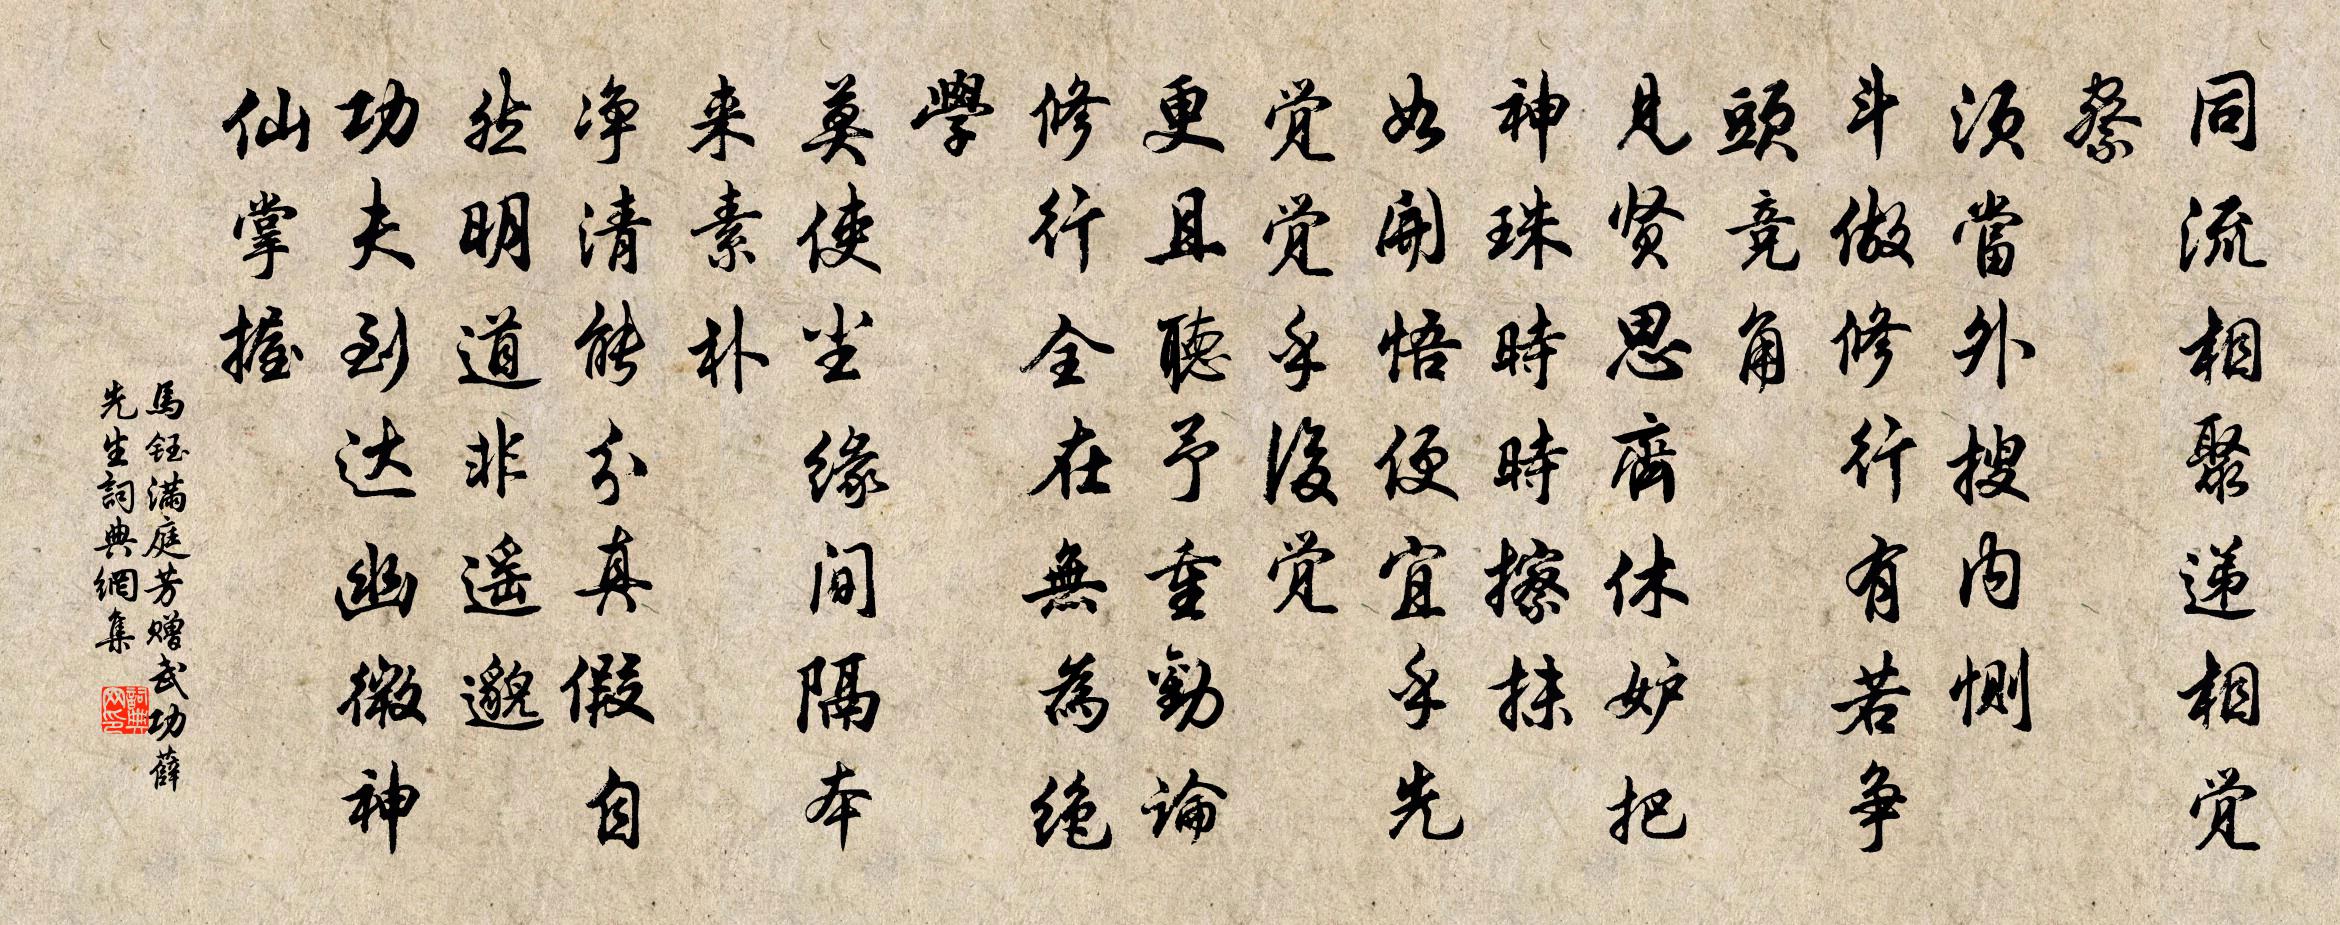 同流相聚递相觉
察
须當外搜内恻
斗做修行有若争
頭竞角
见贤思齊休妒把
神珠時時擦抹
如開悟便宜乎先
觉觉乎後觉
更且聽予重勸論
修行全在無為绝
學
莫使尘缘间隔本
来素朴
净清能分真假自
然明道非遥邈
功夫到达幽微神
仙掌握
馬钰满庭芳赠武功薛
先生詞典網集
詞典
网印